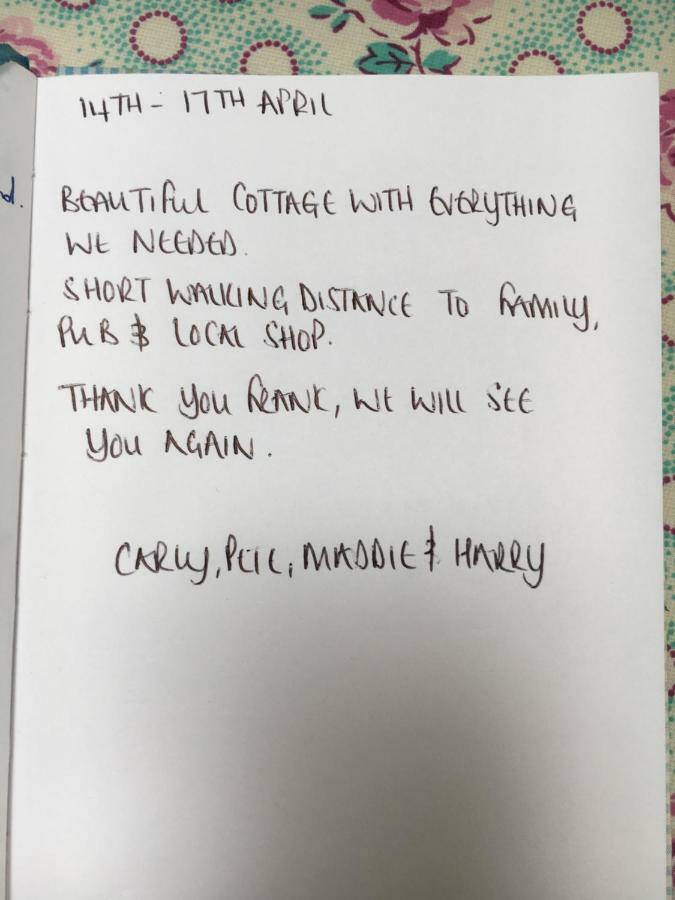 d.
14TH - 17TH APRIL
BEAUTIFUL COTTAGE WITH EVERYTHING
WE NEEDED.
SHORT WALKING DISTANCE TO FAMILY,
PUB & LOCAL SHOP.
THANK YOU FRANK, WE WILL SEE
YOU AGAIN.
CARLY, PETE, MADDIE & HARRY